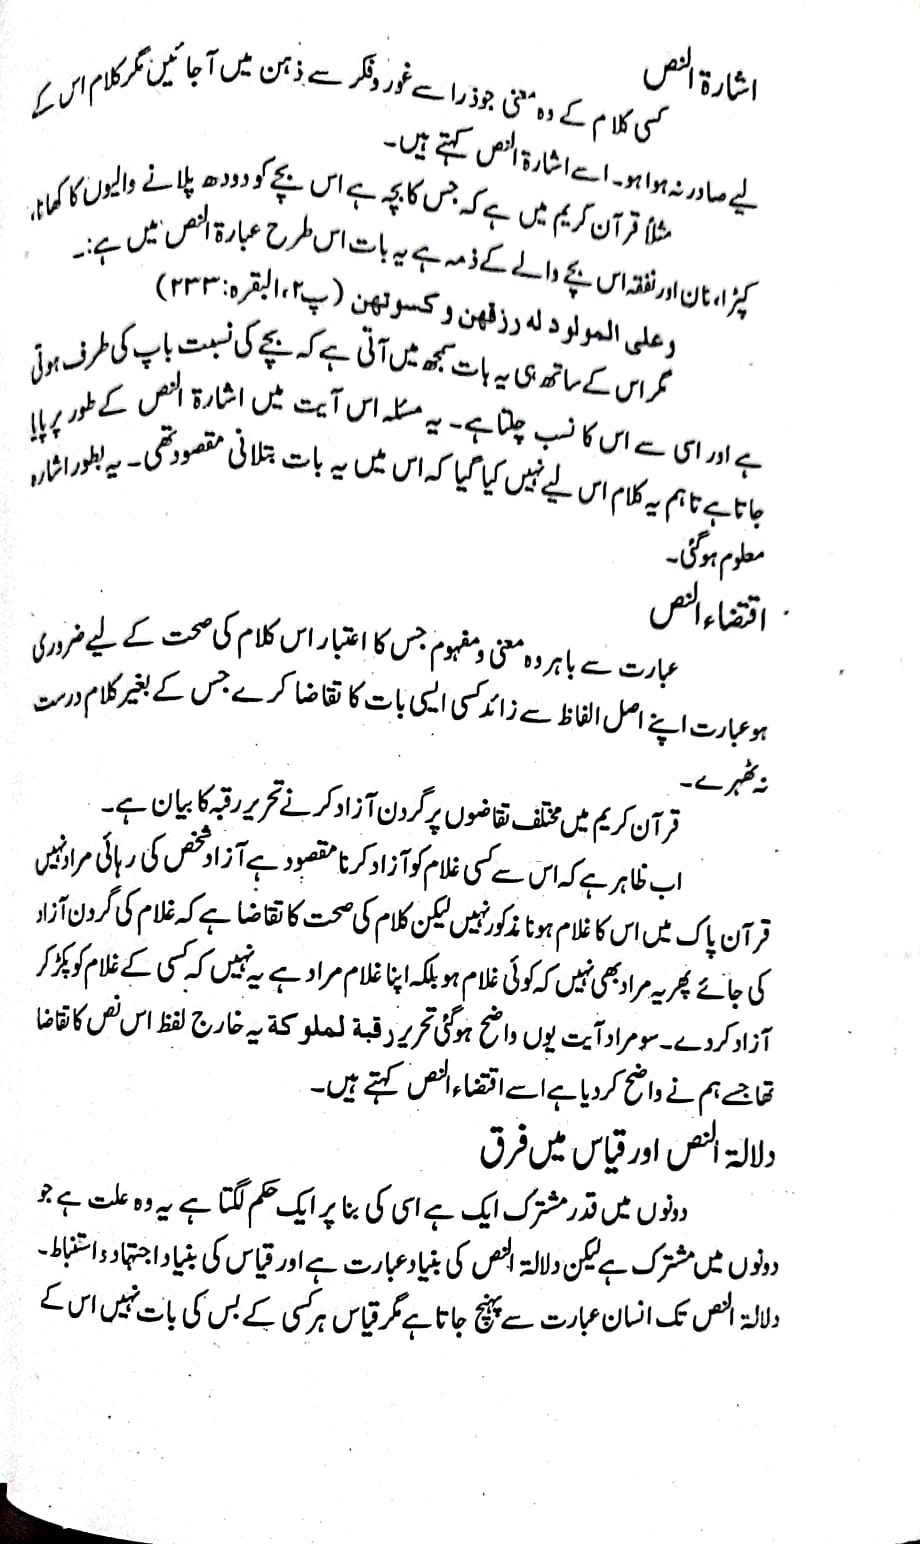 اشارۃ النص
کسی کلام کے وہ معنی جو ذرا سے غور و فکر سے ذہن میں آ جائیں مگر کلام اس کے
لیے صادر نہ ہوا ہو۔ اسے اشارۃ النص کہتے ہیں۔
مثلاً قرآن کریم میں ہے کہ جس کا بچہ ہے اس بچے کو دودھ پلانے والیوں کا کھانا،
کپڑا، نان اور نفقہ اس بچے والے کے ذمہ ہے یہ بات اس طرح عبارۃ النص میں ہے:۔
وعلی المولود له رزقهن و کسوتهن (پ۲، البقرہ: ۲۳۳)
مگر اس کے ساتھ ہی یہ بات سمجھ میں آتی ہے کہ بچے کی نسبت باپ کی طرف ہوتی
ہے اور اسی سے اس کا نسب چلتا ہے۔ یہ مسئلہ اس آیت میں اشارۃ النص کے طور پر پایا
جاتا ہے تاہم یہ کلام اس لیے نہیں کیا گیا کہ اس میں یہ بات بتلانی مقصود تھی۔ یہ بطور اشارہ
معلوم ہو گئی۔
اقتضاء النص
عبارت سے باہر وہ معنی و مفہوم جس کا اعتبار اس کلام کی صحت کے لیے ضروری
ہو عبارت اپنے اصل الفاظ سے زائد کسی ایسی بات کا تقاضا کرے جس کے بغیر کلام درست
نہ ٹھہرے۔
قرآن کریم میں مختلف تقاضوں پر گردن آزاد کرنے تحریر رقبہ کا بیان ہے۔
اب ظاہر ہے کہ اس سے کسی غلام کو آزاد کرنا مقصود ہے آزاد شخص کی رہائی مراد نہیں
قرآن پاک میں اس کا غلام ہونا مذکور نہیں لیکن کلام کی صحت کا تقاضا ہے کہ غلام کی گردن آزاد
کی جائے پھر یہ مراد بھی نہیں کہ کوئی غلام ہو بلکہ اپنا غلام مراد ہے یہ نہیں کہ کسی کے غلام کو پکڑ کر
آزاد کر دے۔ سو مراد آیت یوں واضح ہو گئی تحریر رقبة لمملوکة یہ خارج لفظ اس نص کا تقاضا
تھا جسے ہم نے واضح کر دیا ہے اسے اقتضاء النص کہتے ہیں۔
دلالۃ النص اور قیاس میں فرق
دونوں میں قدر مشترک ایک ہے اسی کی بنا پر ایک حکم لگتا ہے یہ وہ علت ہے جو
دونوں میں مشترک ہے لیکن دلالۃ النص کی بنیاد عبارت ہے اور قیاس کی بنیاد اجتہاد و استنباط۔
دلالۃ النص تک انسان عبارت سے پہنچ جاتا ہے مگر قیاس ہر کسی کے بس کی بات نہیں اس کے